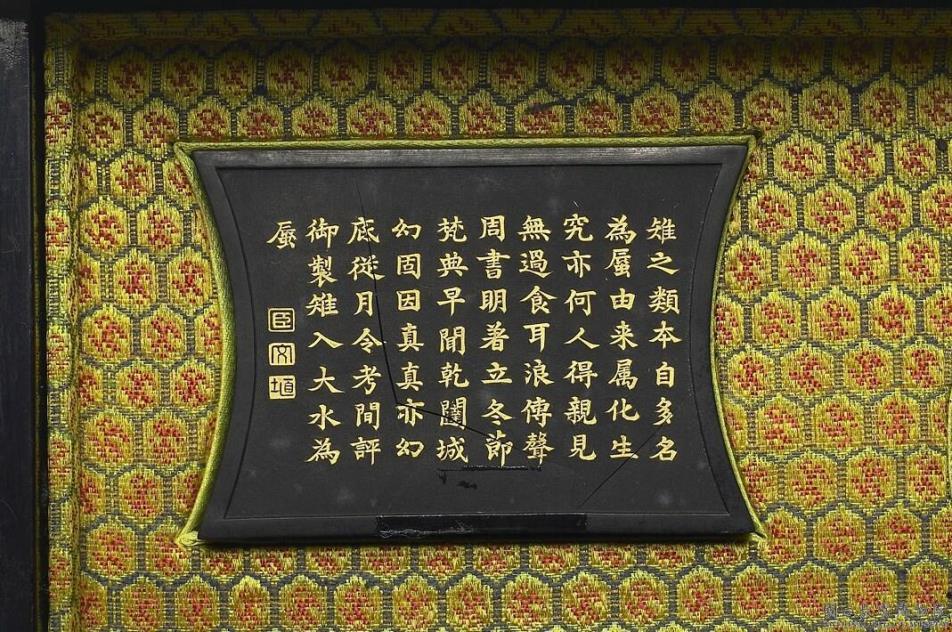 雉之類本自多名
為蜃由来属化生
究亦何人得親見
無過食耳浪傳聲
周書明著立冬節
梵典早聞乾闥城
幻固因真真亦幻
底從月令考間評
御製雉入大水為
蜃
臣
文
埴